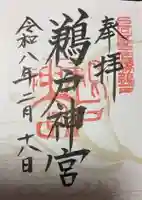 奉拝
鵜戸神宮
令和八年二月十八日